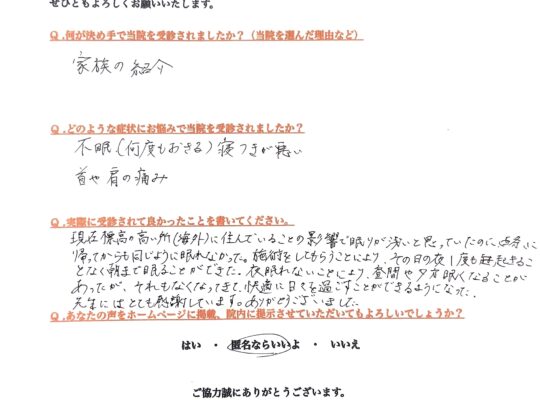 ぜひともよろしくお願いいたします。
Q.何が決め手で当院を受診されましたか?(当院を選んだ理由など)
家族の紹介
Q.どのような症状にお悩みで当院を受診されましたか?
不眠(何度もおきる)寝つきが悪い
首や肩の痛み
Q.実際に受診されて良かったことを書いてください。
現在標高の高い所(海外)に住んでいることの影響で眠りが浅いと思っていたのに
帰ってからも同じように眠れなかった。施術をしてもらうことにより、その日の夜1度も起きる
ことなく朝まで眠ることができた。夜眠れないことにより、昼間や夕方眠くなることが
あったが、それもなくなってきて、快適に日々を過ごすことができるようになった。
先生にはとても感謝しています。ありがとうございました。
Q.あなたの声をホームページに掲載、院内に提示させていただいてもよろしいでしょうか?
はい ・ 匿名ならいいよ ・ いいえ
ご協力誠にありがとうございます。